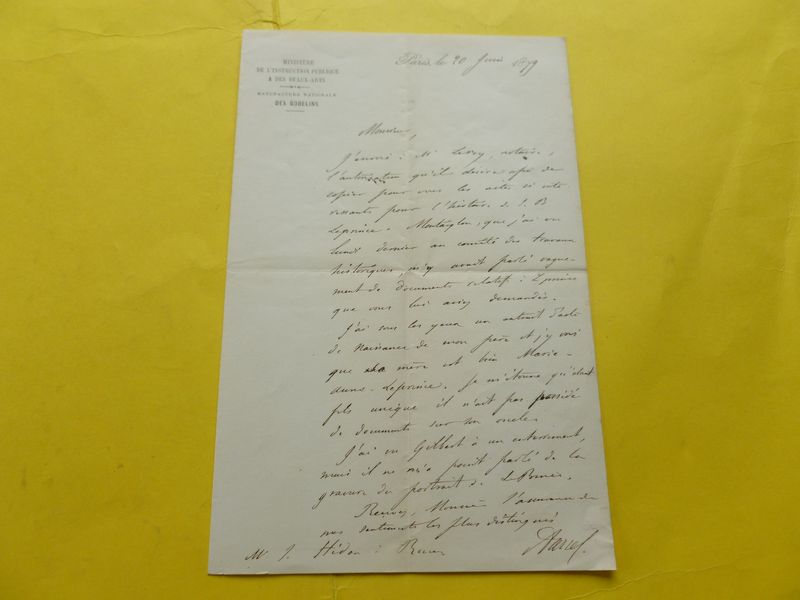 MINISTÈRE
DE L'INSTRUCTION PUBLIQUE
& DES BEAUX-ARTS
MANUFACTURE NATIONALE
DES GOBELINS
Paris, le 20 Juin 1879
Monsieur,
J'envoie à Mr Leroy, notaire,
l'autorisation qu'il désire afin de
copier pour vous les actes si inté
ressants pour l'histoire de J. B
Leprince. Montaiglon, que j'ai vu
lundi dernier au comité des travaux
historiques, m'y avait parlé vague-
ment de documents relatifs à Leprince
que vous lui aviez demandés.
J'ai sous les yeux un extrait d'acte
de naissance de mon père et j'y vois
que sa mère est bien Marie-
anne-Leprince. Je m'étonne qu'étant
fils unique il n'ait pas possédé
de documents sur son oncle.
J'ai vu Gilbert à un enterrement,
mais il ne m'a point parlé de la
gravure du portrait de Le Prince.
Recevez, Monsieur l'assurance de
mes sentiments les plus distingués
Darcel.
Mr J. Hédou à Rouen